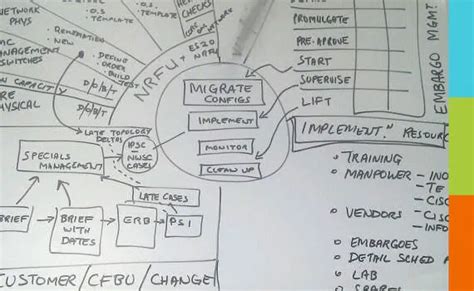 NETWORK
PHYS
O.S. TEMPLATE
O.S. TEMPLATE
HEALTH
CHECKS
- RENOVATION
- NEW
MANAGEMENT
SWITCHES
- DEFINE
- ORDER
- BUILD
TEST
CAPACITY
PHYSICAL
D/O/B/T
D/O/B/T
NRFU
ES20
MIGRATE
CONFIGS
IMPLEMENT
MONITOR
CLEAN UP
PROMULGATE
PRE-APPROVE
START
SUPERVISE
LIFT
EMBARGO MGMT
LATE TOPOLOGY
DELTAS
IPSC
NWSC
CASES
SPECIALS
MANAGEMENT
LATE CASES
BRIEF
BRIEF
WITH
DATES
ERB
PSI
CUSTOMER/CFBU/CHANGE
"IMPLEMENT" RESOURC
o TRAINING
o MANPOWER - INO
- TE
- CISC
o VENDORS - CISC
- INFO
o EMBARGOES
o DETAIL SCHED
o LAB
o SPARES